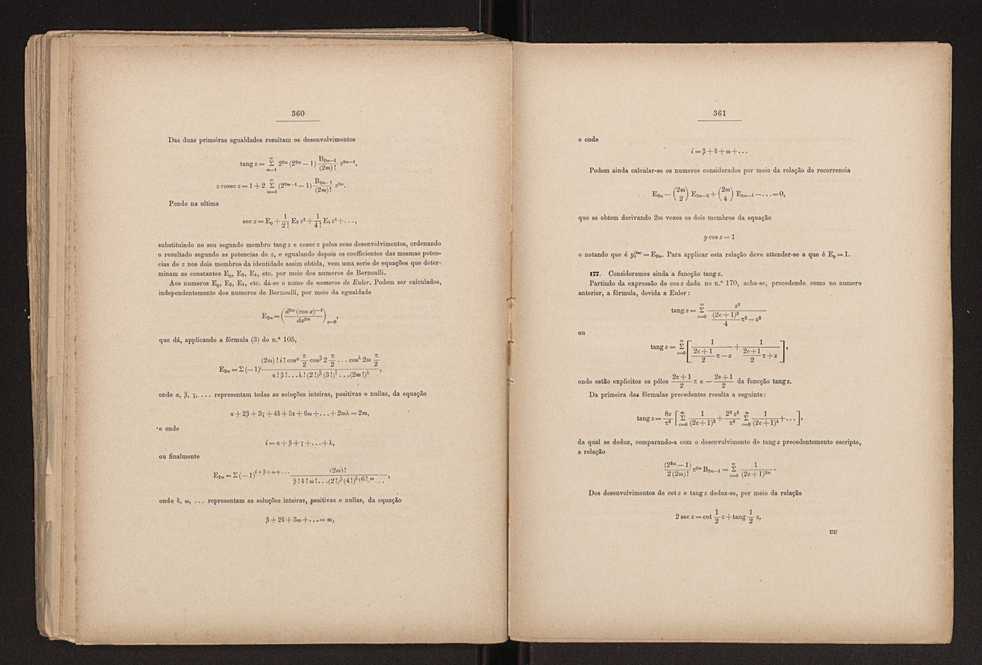 360
Das duas primeiras egualdades resultam os desenvolvimentos
tang z = Σ_{m=1}^{∞} 2^{2m} (2^{2m} − 1) B_{2m−1}/(2m)! z^{2m−1},
z cosec z = 1 + 2 Σ_{m=1}^{∞} (2^{2m−1} − 1) B_{2m−1}/(2m)! z^{2m}.
Pondo na ultima
sec z = E₀ + 1/2! E₂ z² + 1/4! E₄ z⁴ + . . . ,
substituindo no seu segundo membro tang z e cosec z pelos seus desenvolvimentos, ordenando
o resultado segundo as potencias de z, e egualando depois os coefficientes das mesmas poten-
cias de z nos dois membros da identidade assim obtida, vem uma serie de equações que deter-
minam as constantes E₀, E₂, E₄, etc. por meio dos numeros de Bernoulli.
Aos numeros E₀, E₂, E₄, etc. dá-se o nome de numeros de Euler. Podem ser calculados,
independentemente dos numeros de Bernoulli, por meio da egualdade
E_{2m} = (d^{2m} (cos x)^{−1} / dx^{2m})_{x=0},
que dá, applicando a fórmula (3) do n.º 105,
E_{2m} = Σ (−1)^i (2m)! i! cos^α π/2 cos^β 2 π/2 . . . cos^λ 2m π/2 / α! β! . . . λ! (2!)^β (3!)^γ . . . (2m!)^λ ,
onde α, β, γ, . . . representam todas as soluções inteiras, positivas e nullas, da equação
α + 2β + 3γ + 4δ + 5ε + 6ω + . . . + 2mλ = 2m,
e onde
i = α + β + γ + . . . + λ,
ou finalmente
E_{2m} = Σ (−1)^{i+β+ω+...} (2m)! / β! δ! ω! . . . (2!)^β (4!)^δ (6!)^ω . . . ,
onde δ, ω, . . . representam as soluções inteiras, positivas e nullas, da equação
β + 2δ + 3ω + . . . = m,
361
e onde
i = β + δ + ω + . . .
Podem ainda calcular-se os numeros considerados por meio da relação de recorrencia
E_{2m} − (2m 2) E_{2m−2} + (2m 4) E_{2m−4} − . . . = 0,
que se obtem derivando 2m vezes os dois membros da equação
y cos x = 1
e notando que é y₀^{2m} = E_{2m}. Para applicar esta relação deve attender-se a que é E₀ = 1.
177. Consideremos ainda a funcção tang z.
Partindo da expressão de cos z dada no n.º 170, acha-se, procedendo como no numero
anterior, a fórmula, devida a Euler:
tang z = Σ_{c=0}^{∞} z² / ((2c+1)²/4 π² − z²)
ou
tang z = Σ_{c=0}^{∞} [ 1/((2c+1)/2 π − z) + 1/((2c+1)/2 π + z) ],
onde estão explicitos os pólos (2c+1)/2 π e − (2c+1)/2 da funcção tang z.
Da primeira das fórmulas precedentes resulta a seguinte:
tang z = 8z/π² [ Σ_{c=0}^{∞} 1/(2c+1)² + 2² z²/π² Σ_{c=0}^{∞} 1/(2c+1)⁴ + . . . ],
da qual se deduz, comparando-a com o desenvolvimento de tang z precedentemente escripto,
a relação
(2^{2m} − 1)/2 (2m)! π^{2m} B_{2m−1} = Σ_{c=0}^{∞} 1/(2c+1)^{2m} .
Dos desenvolvimentos de cot z e tang z deduz-se, por meio da relação
2 sec z = cot 1/2 z + tang 1/2 z,
UU